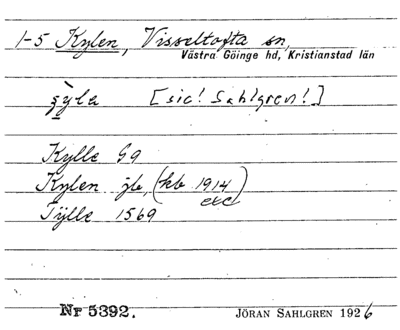 1-5 Kylen, Visseltofta sn,
Västra Göinge hd, Kristianstad län
çỳ̱la [sic! Sahlgren!]
Kylle 69
Kylen jb, (kb 1914)
exc
Tÿlle 1569
Nr 5392. JÖRAN SAHLGREN 1926